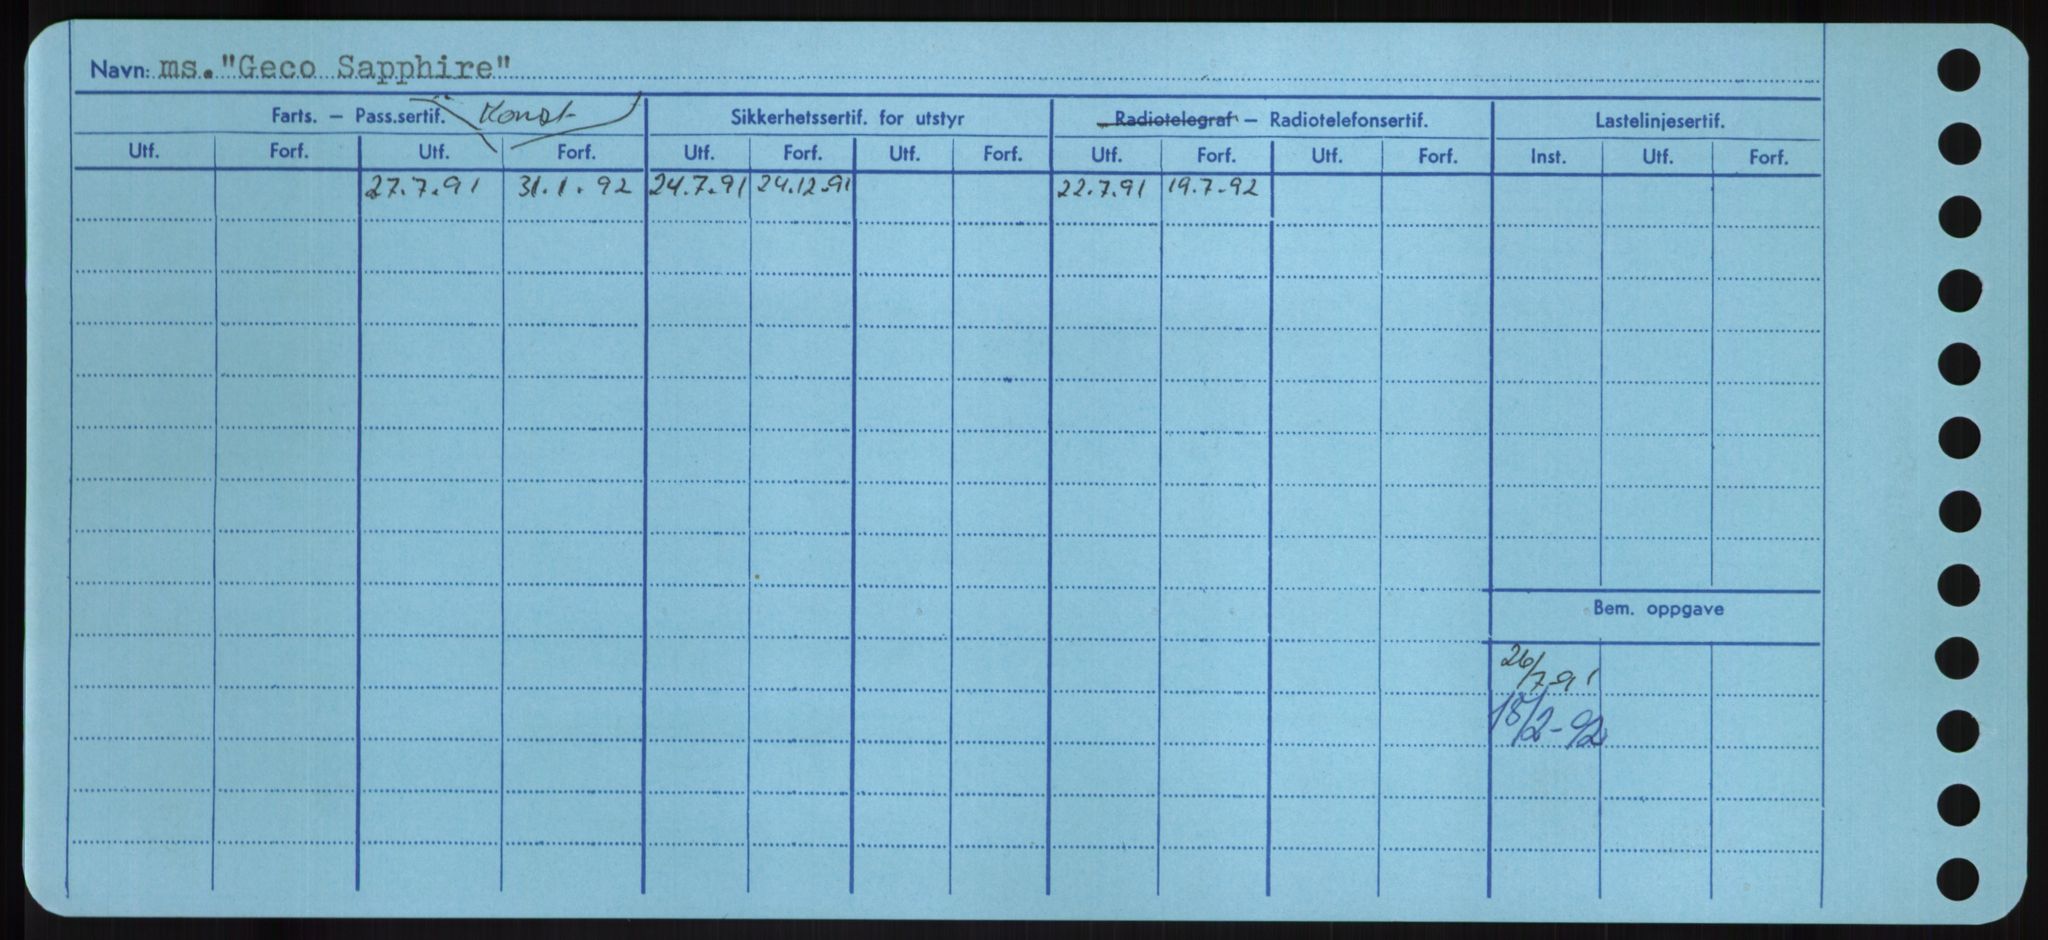 Navn: ms. "Geco Sapphire"
Farts. — Pass.sertif. Konst Sikkerhetssertif. for utstyr Radiotelegraf — Radiotelefonsertif. Lastelinjesertif.
Utf. Forf. Utf. Forf. Utf. Forf. Utf. Forf. Utf. Forf. Utf. Forf. Inst. Utf. Forf.
27.7.91 31.1.92 24.7.91 24.12.91 22.7.91 19.7.92
Bem. oppgave
26/7-91
18/2-92